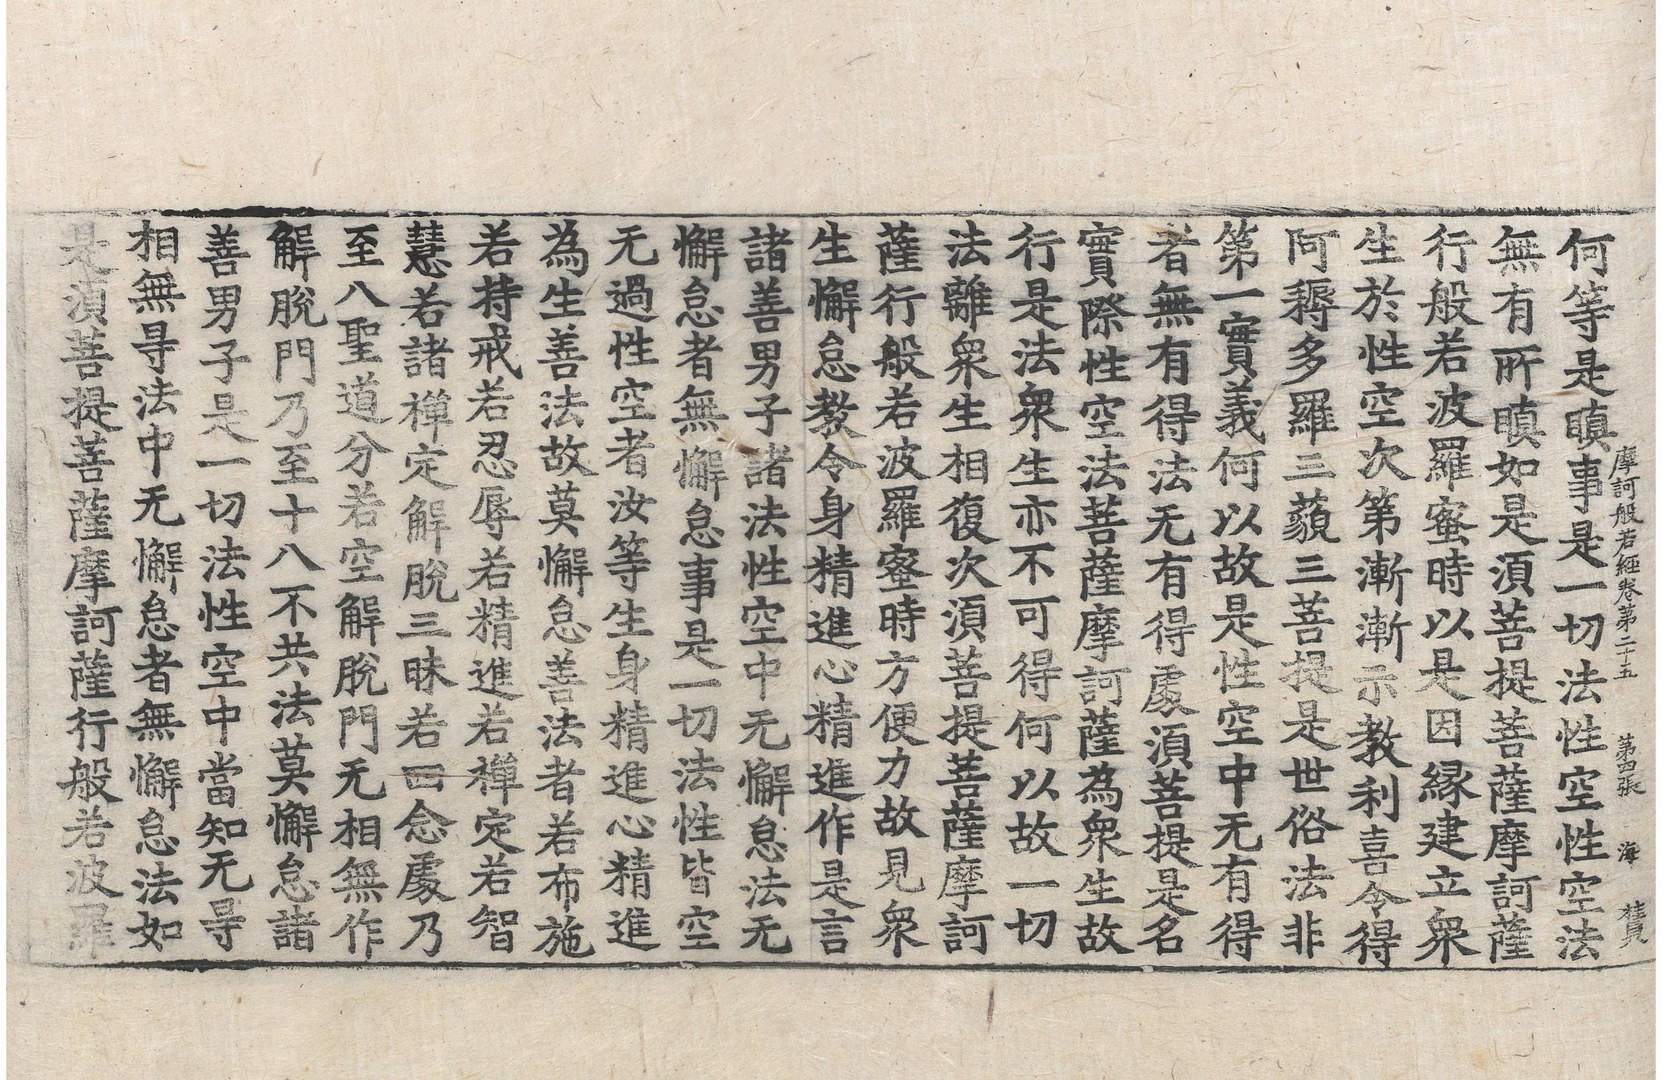 摩訶般若經卷第二十五 第四張 海
何等是瞋事是一切法性空性空法
無有所瞋如是湏菩提菩薩摩訶薩
行般若波羅蜜時以是因縁建立衆
生於性空次第漸漸示教利喜令得
阿耨多羅三藐三菩提是世俗法非
第一實義何以故是性空中无有得
者無有得法无有得處湏菩提是名
實際性空法菩薩摩訶薩為衆生故
行是法衆生亦不可得何以故一切
法離衆生相復次湏菩提菩薩摩訶
薩行般若波羅蜜時方便力故見衆
生懈怠教令身精進心精進作是言
諸善男子諸法性空中无懈怠法无
懈怠者無懈怠事是一切法性皆空
无過性空者汝等生身精進心精進
為生善法故莫懈怠善法者若布施
若持戒若忍辱若精進若禪定若智
慧若諸禪定解脫三昧若四念處乃
至八聖道分若空解脫門无相無作
解脫門乃至十八不共法莫懈怠諸
善男子是一切法性空中當知无㝵
相無㝵法中无懈怠者無懈怠法如
是湏菩提菩薩摩訶薩行般若波羅